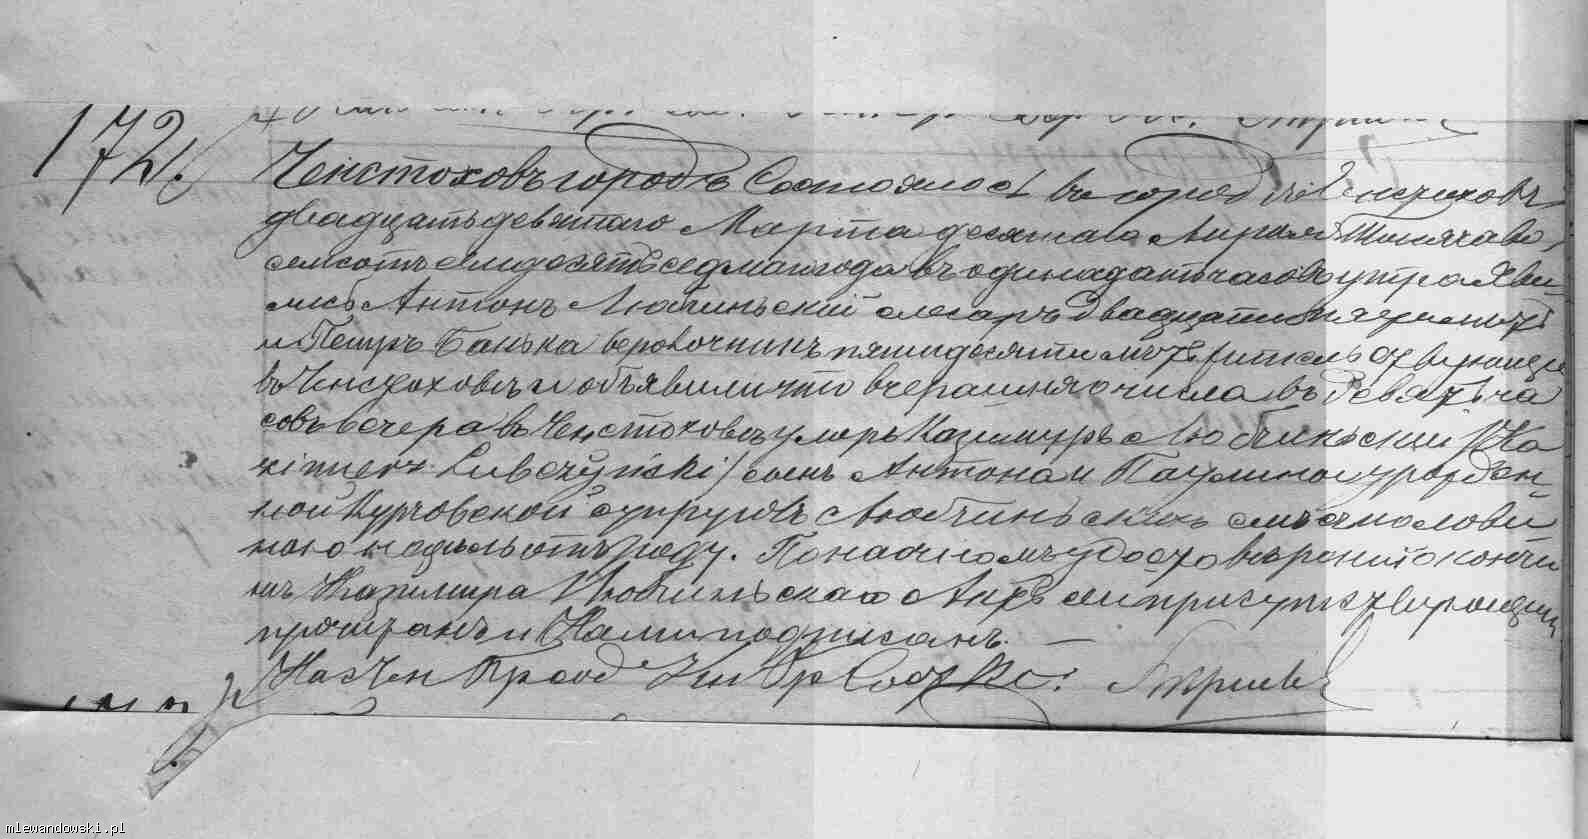 172.
Ченстоховъ городъ Состоялось въ городѣ Ченстоховѣ
двадцать девятаго Марта десятаго Апрѣля Тысяча во
семсотъ семидесять седмаго года въ одинадцать часовъ утра Яви
лись Антонъ Любчиньский слесаръ двадцати лѣтъ
и Петръ Банька веровочникъ пятидесяти лѣтъ жительствующие
въ Ченстоховѣ и объявили что вчерашняго числа въ девять ча
совъ вечера въ Ченстоховѣ умеръ Казимиръ Любчиньский /Ka
zimierz Lubczyński/ сынъ Антона и Паулины урожден
ной Курковской супруговъ Любчиньскихъ семъ съ полови
ною недѣль отъ роду. По наочномъ удостовѣрении о кончи
нѣ Казимира Любчиньскаго Актъ сей присутствующимъ
прочитанъ и Нами подписанъ. —